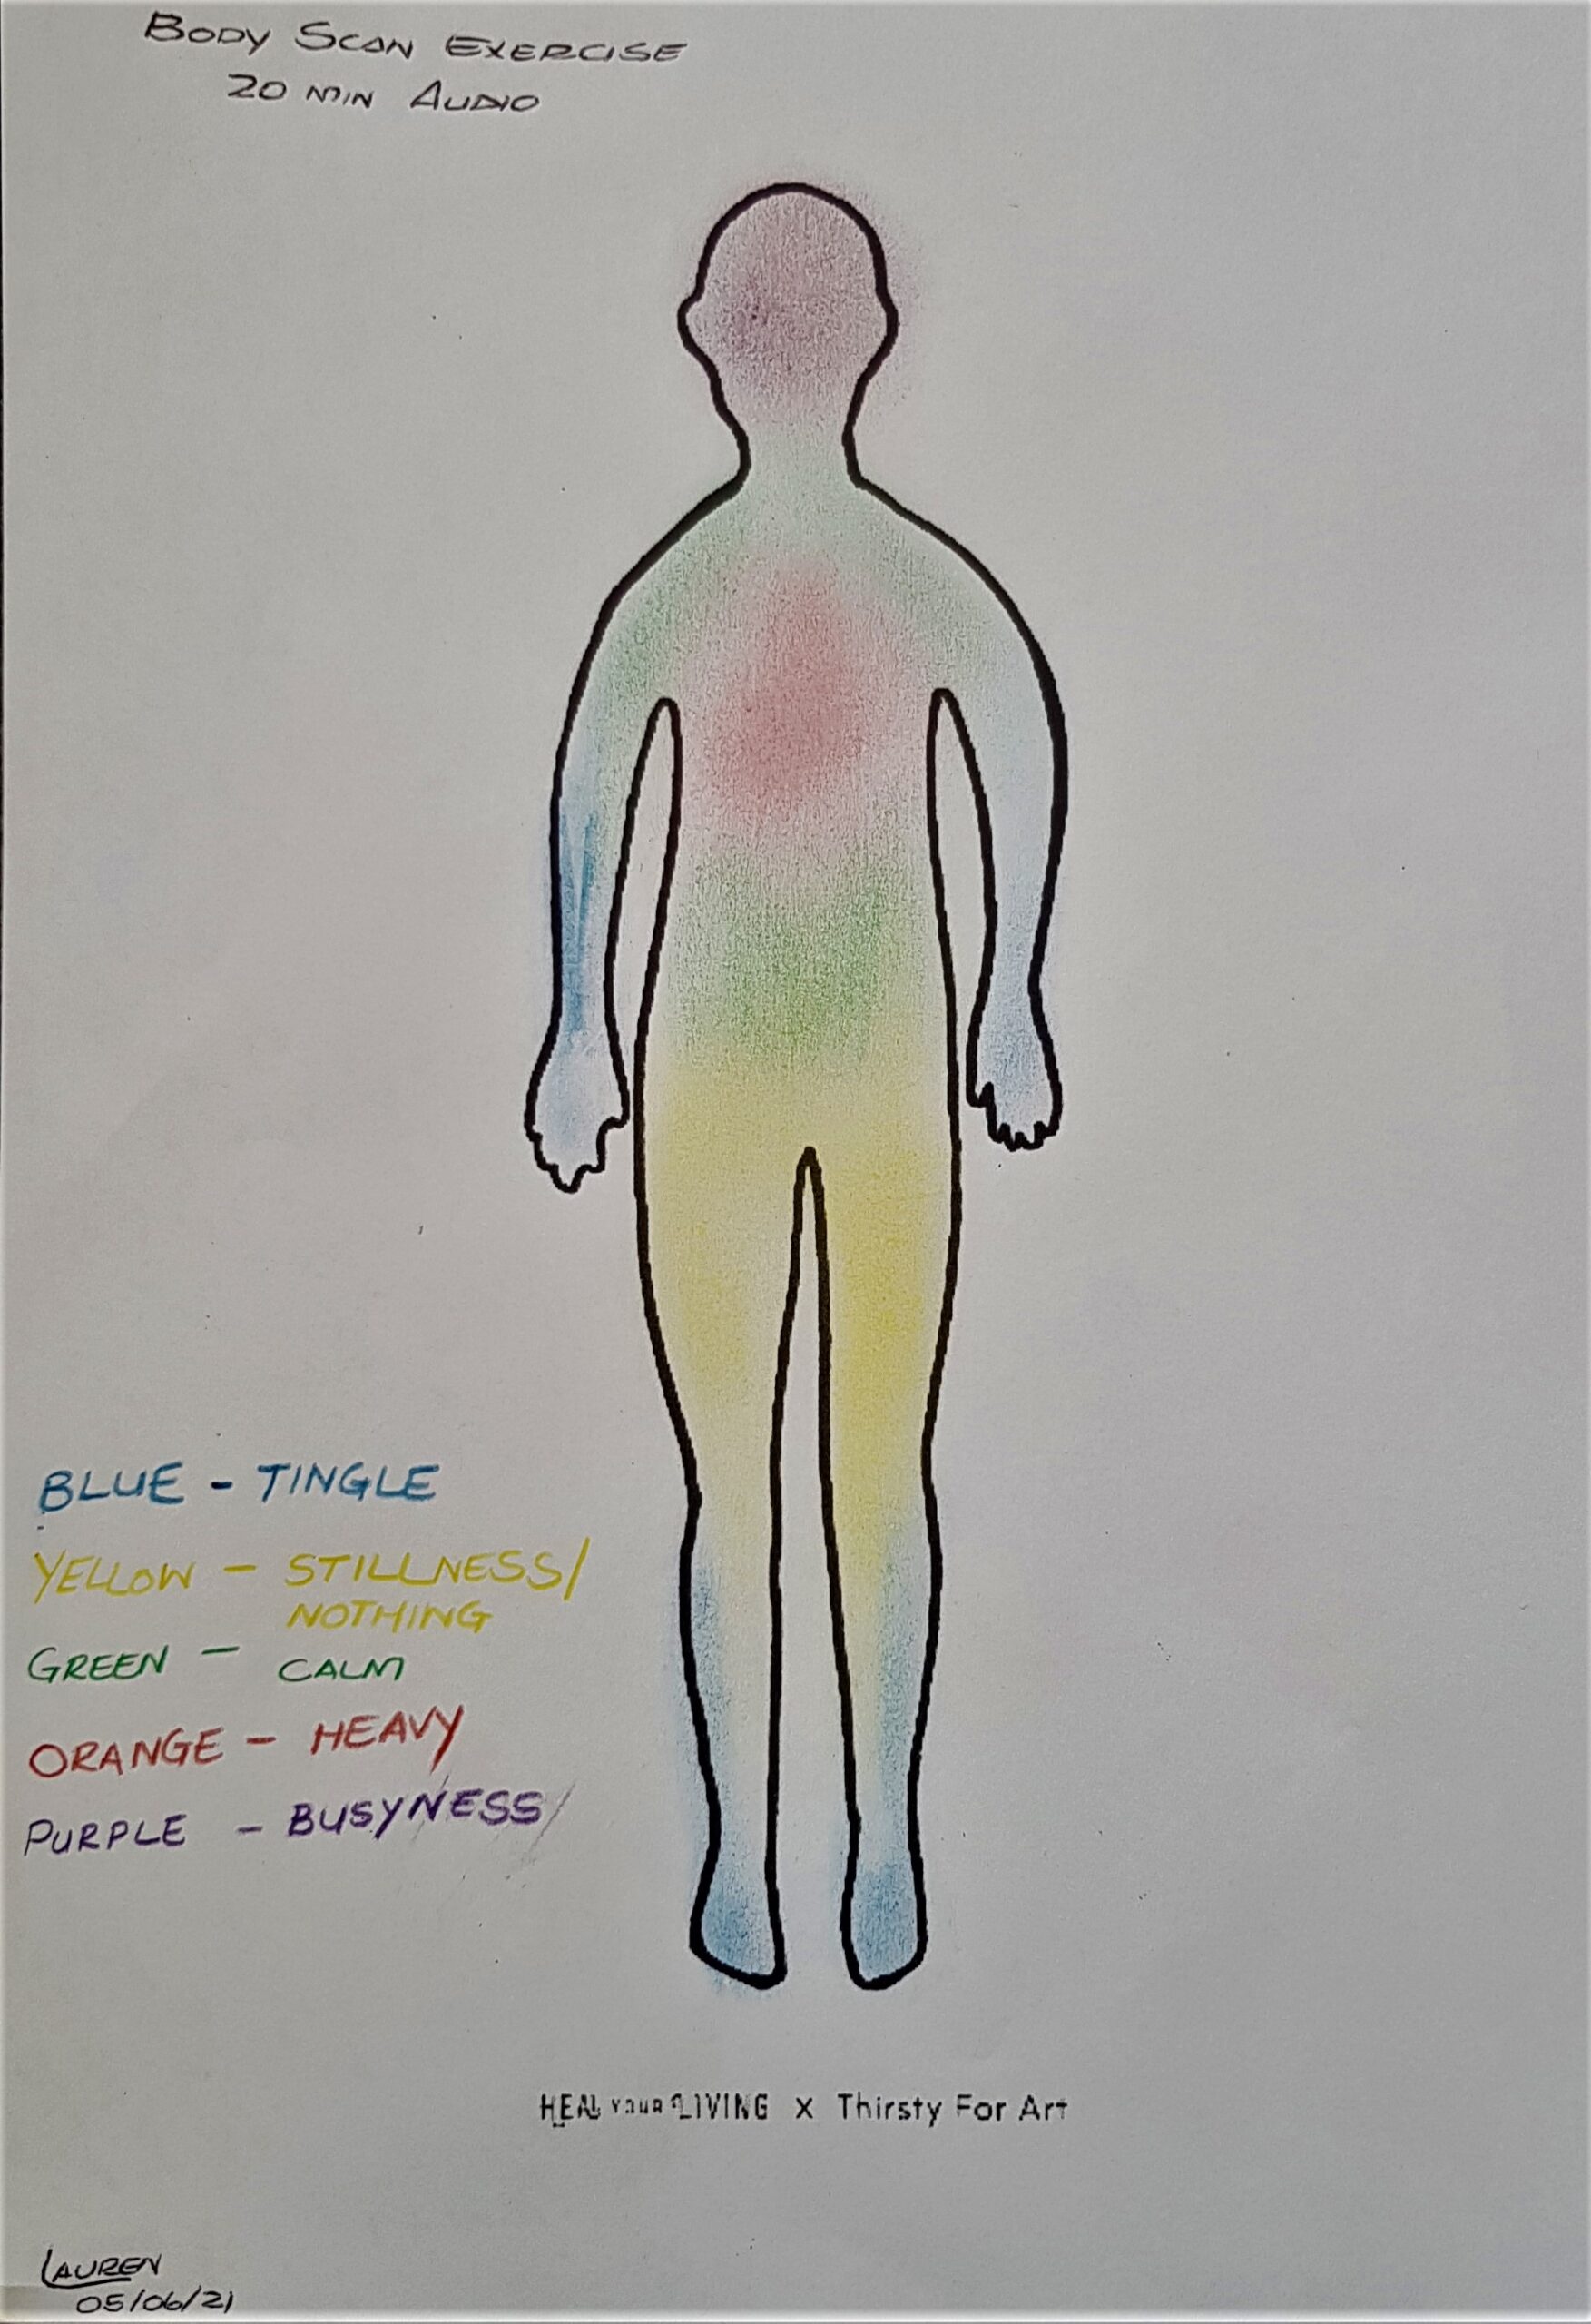 BODY SCAN EXERCISE
20 MIN AUDIO
BLUE - TINGLE
YELLOW - STILLNESS/
NOTHING
GREEN - CALM
ORANGE - HEAVY
PURPLE - BUSYNESS/
HEAL YOUR LIVING x Thirsty For Art
LAUREN
05/06/21